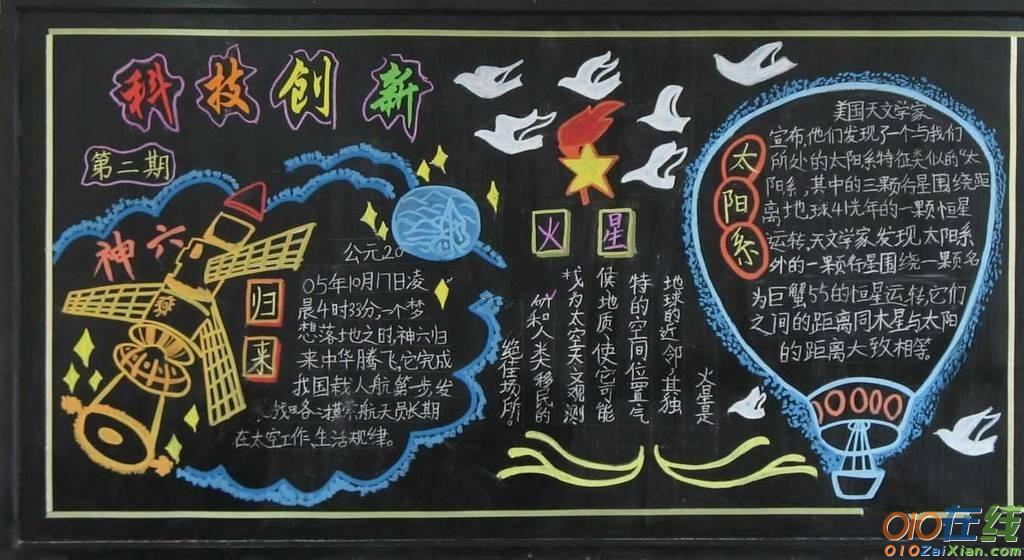 科技创新
第二期
神六
归来
公元20
05年10月17日凌
晨4时33分,一个梦
想落地之时,神六归
来中华腾飞,它完成
我国载人航第一步发
航天员长期
在太空工作、生活规律。
火星
火星是
地球的近邻,其独
特的空间位置气
候地质,使它可能
成为太空天文观测
和人类移民的
绝佳场所。
太阳系
美国天文学家
宣布,他们发现了一个与我们
所处的太阳系特征类似的“太
阳系,其中的三颗行星围绕距
离地球41光年的一颗恒星
运转,天文学家发现太阳系
外的一颗行星围绕一颗名
为巨蟹55的恒星运转,它们
之间的距离同木星与太阳
的距离大致相等。
010在线
010ZaiXian.com